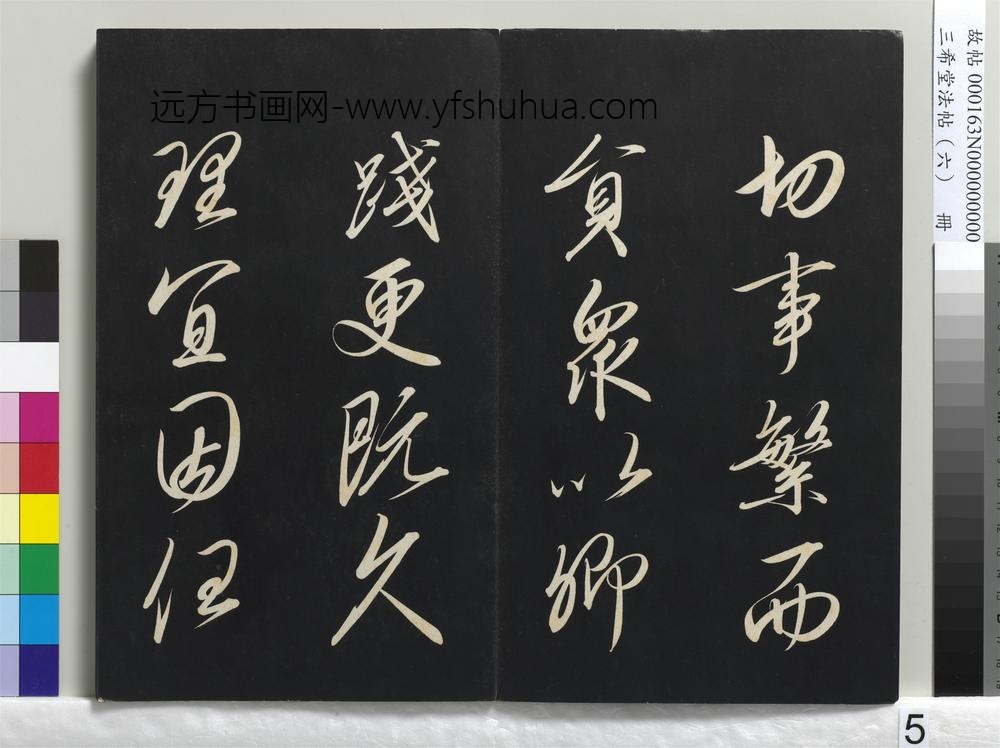 远方书画网-www.yfshuhua.com
切事繁而
員衆以卿
踐更既久
理宜因任
故帖 000163N000000000
三希堂法帖（六） 冊
5